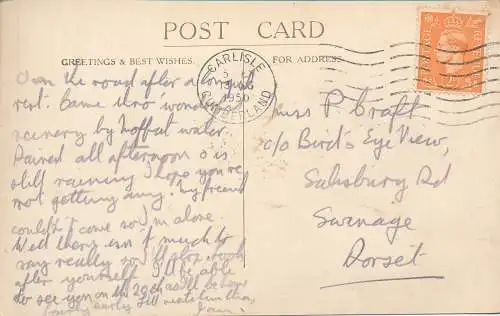 POST CARD
GREETINGS & BEST WISHES.
FOR ADDRESS.
CARLISLE
1950
CUMBERLAND
On the road after a long wait
rest. Came thro wonderful
scenery by Moffat water
Rained all afternoon & is
still raining I hope you're
not getting any. My friend
couldn't come so I'm alone.
Well there isn't much to
say really so I'll stop. Look
after yourself I'll be able
to see you on the 20th as I'll be
early
Miss P Craft
c/o Bird's Eye View,
Salisbury Rd
Swanage
Dorset